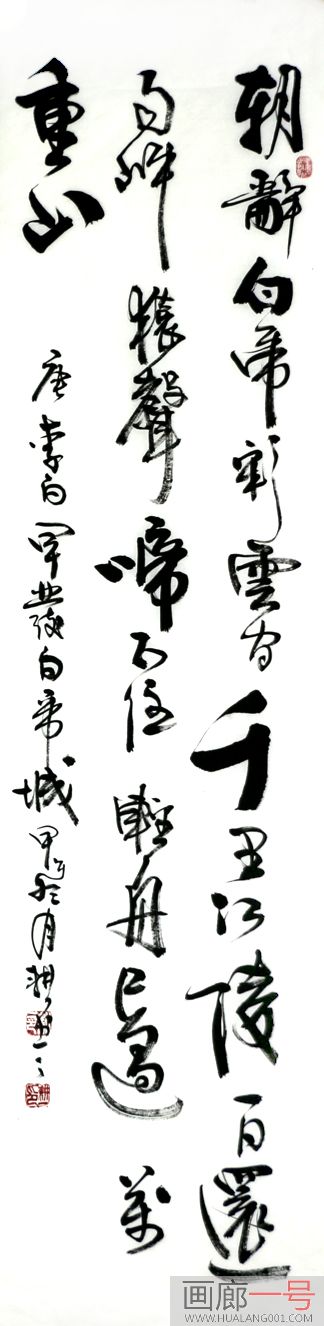 朝辭白帝彩雲間千里江陵一日還
兩岸猿聲啼不住輕舟已過萬
重山
唐李白早發白帝城甲午月
画廊一号
WWW.HUALANG001.COM